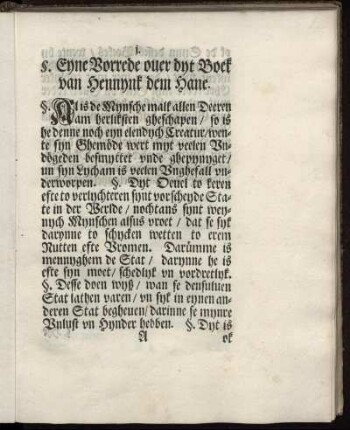 1.
§. Eyne Vorrede ouer dyt Boek
van Hennynk dem Hane.
§. Als de Mynsche malk allen Deeren
am herliksten gheschapen / so is
he denne noch eyn elendych Creatur / wen-
te syn Ghemöde wert myt veelen Vn-
dögeden besmyttet vnde ghepynyget /
un syn Lycham is veelen Unghefall un-
derworpen. §. Dyt Ouel to keren
efte to verlychteren synt vorscheyde Sta-
te in der Werlde / nochtans synt wey-
nych Mynschen alsus vroet / dat se syk
darynne to schycken wetten to erem
Nutten efte Vromen. Darümme is
mennyghem de Stat / darynne he is
efte syn moet / schedlyk vn vordretlyk.
§. Desse doen wyß / wan se densuluen
Stat lathen varen / vn syk in eynen an-
deren Stat begheuen / darinne se mynre
Vnlust vn Hynder hebben. §. Dyt is
A ok